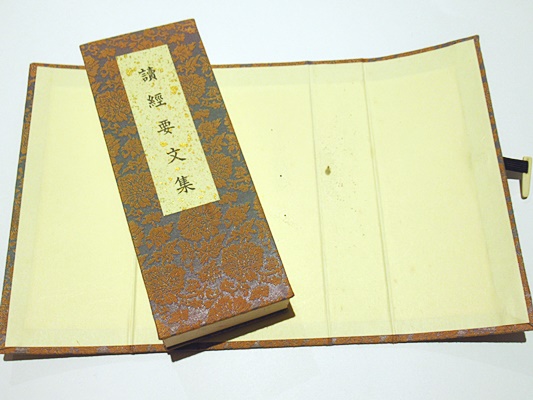 讀經要文集